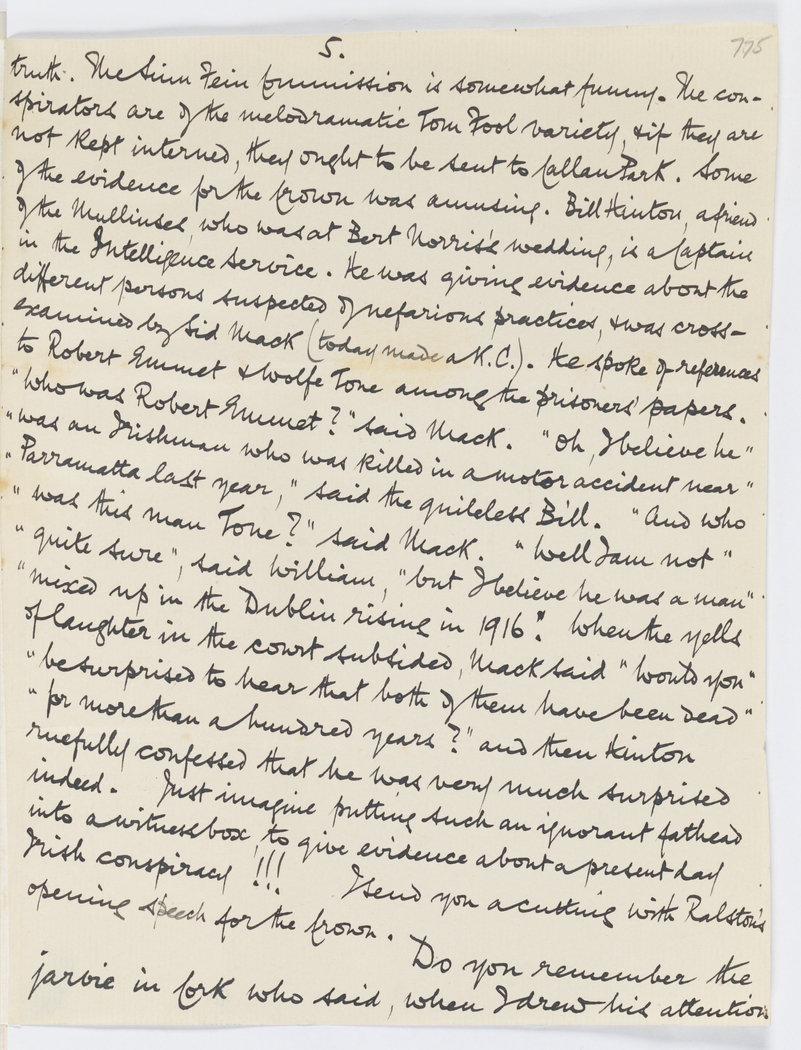 5.
775
truth. The Sinn Fein Commission is somewhat funny. The con-
spirators are of the melodramatic Tom Fool variety, & if they are
not kept interned, they ought to be sent to Callan Park. Some
of the evidence for the Crown was amusing. Bill Hinton, a friend
of the Mullinses, who was at Bert Norris's wedding, is a Captain
in the Intelligence Service. He was giving evidence about the
different persons suspected of nefarious practices, & was cross-
examined by Sid Mack (today made a K.C.). He spoke of references
to Robert Emmet & Wolfe Tone among the prisoners' papers.
"Who was Robert Emmet?" said Mack. "Oh, I believe he"
"was an Irishman who was killed in a motor accident near"
"Parramatta last year," said the guileless Bill. "And who
"was this man Tone?" said Mack. "Well I am not"
"quite sure", said William, "but I believe he was a man"
"mixed up in the Dublin rising in 1916". When the yells
of laughter in the court subsided, Mack said "Would you"
"be surprised to hear that both of them have been dead"
"for more than a hundred years?" and then Hinton
ruefully confessed that he was very much surprised
indeed. Just imagine putting such an ignorant fathead
into a witness box, to give evidence about a present day
Irish conspiracy!!! I send you a cutting with Ralston's
opening speech for the Crown.
Do you remember the
jarvie in Cork who said, when I drew his attention